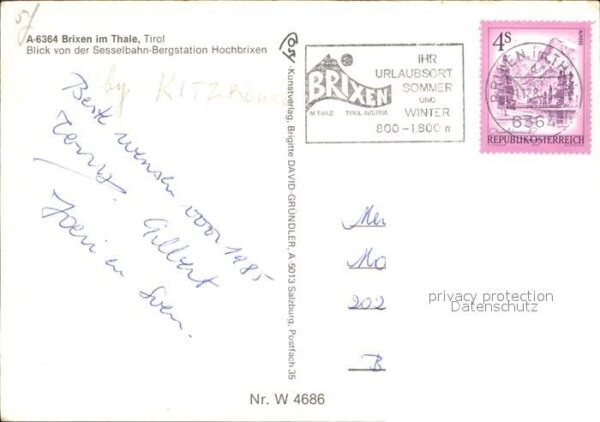 A-6364 Brixen im Thale, Tirol
Blick von der Sesselbahn-Bergstation Hochbrixen
by KITZBÜHEL
Beste wensen voor 1985
Gilbert
Joeri en Sven.
Cosy-Kunstverlag, Brigitte DAVID-GRÜNDLER, A-5013 Salzburg, Postfach 35
BRIXEN
IM THALE TIROL AUSTRIA
IHR
URLAUBSORT
SOMMER
UND
WINTER
800-1.800 m
4S
BRIXEN IM THALE
6364
REPUBLIK ÖSTERREICH
Mev
Mo
202
B
privacy protection
Datenschutz
Nr. W 4686